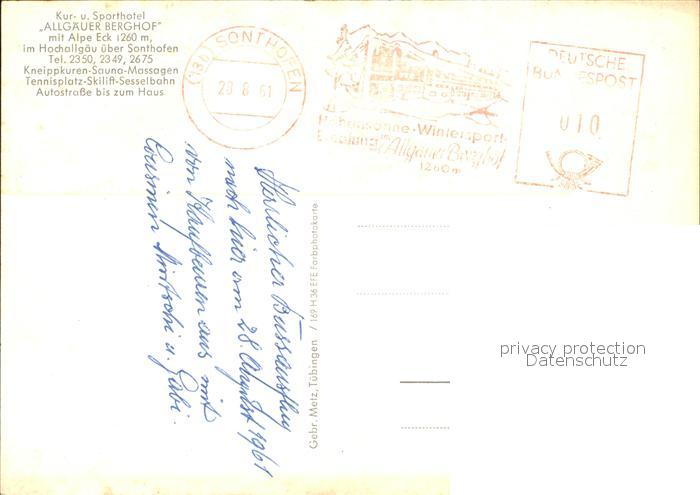 Kur- u. Sporthotel
„ALLGÄUER BERGHOF"
mit Alpe Eck 1260 m,
im Hochallgäu über Sonthofen
Tel. 2350, 2349, 2675
Kneippkuren-Sauna-Massagen
Tennisplatz-Skilift-Sesselbahn
Autostraße bis zum Haus
(13b) SONTHOFEN
29.8.61
Höhensonne-Wintersport-
Erholung im Allgäuer Berghof
1260m
DEUTSCHE
BUNDESPOST
010
Herrlicher Busausflug
nach hier am 28. August 1961
von Kaufbeuren aus mit
Cousinen u. Gabi.
Gebr. Metz, Tübingen / 169 H 36 EFE Farbphotokarte
privacy protection
Datenschutz